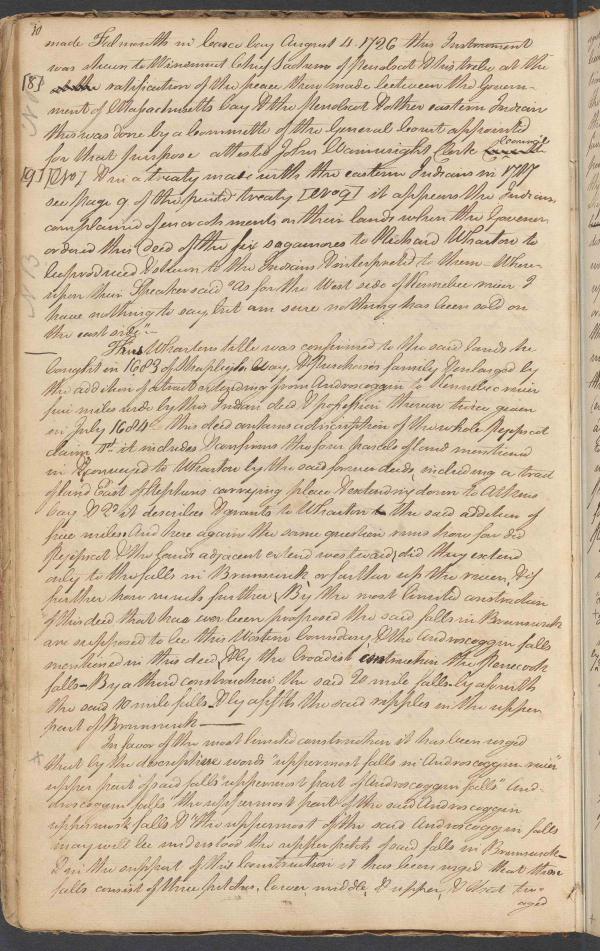 10
made Falmouth in Casco bay August 4. 1726 this Instrument
was shewn to Winemuet Chief Sachem of Penobscot & his tribe at the
[8] ratification of the peace then made between the Govern-
ment of Massachusetts bay & the Penobscot & other eastern Indian
this was done by a Committe of the General Court appointed
for that purpose attested John Wainwright Clerk Council
[9] [No] & in a treaty made with the eastern Indians in 1717
see page 9 of the printd treaty [No 9] it appears the Indians
complained of encroachments on their lands when the Governor
ordered this Deed of the six sagamores to Richard Wharton to
be produced & shewn to the Indians & interpreted to them - Where-
upon their Speaker said "As for the West side of Kennebec river I
have nothing to say but am sure nothing has been sold on
the east side" -
Thus Whartons title was confirmed to the said lands he
bought in 1683 of Shapleigh, Way, & Purchases family & enlarged by
the addition of a tract extending from Androscoggin to Kennebec river
five miles wide by this Indian deed & possession thereon twice given
in July 1684 - this deed contains a discription of the whole Pejepscot
claim 1st it includes & confirms the four parcels of land mentioned
in & conveyed to Wharton by the said former deeds, including a tract
of land East of Stephens carrying place & extending down to Atkins
bay & 2d it describes & grants to Wharton the said addition of
five miles. And here again the same question runs how far did
Pejepscot & the lands adjacent extend westward, did they extend
only to the falls in Brunswick or farther up the river, & if
further how much further. By the most limited construction
of this deed that has ever been proposed the said falls in Brunswick
are supposed to be this Western boundary & the Androscoggin falls
mentioned in this deed, & by the broadest construction the
falls - By a third construction the said 20 mile falls - by a fourth
the said 10 mile falls & by a fifth the said ripples in the upper
part of Brunswick -
In favor of the most limited construction it has been urged
x that by the descriptive words "uppermost falls in Androscoggin river"
upper part of said falls "uppermost part of Androscoggin falls" And-
droscoggin falls "the uppermost part of the said Androscoggin
uppermost falls & "the uppermost of the said Androscoggin falls
may well be understood the upper pitch of said falls in Brunswick -
& in the support of this Construction it has been urged that those
falls consist of three pitches, lower, middle, & upper, & that two
aged